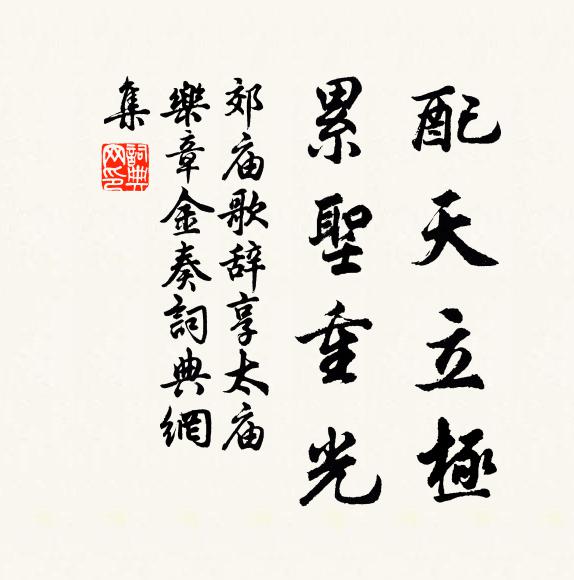 配天立極
累聖重光
郊庙歌辞享太庙
樂章金奏詞典網
集
詞典
网印